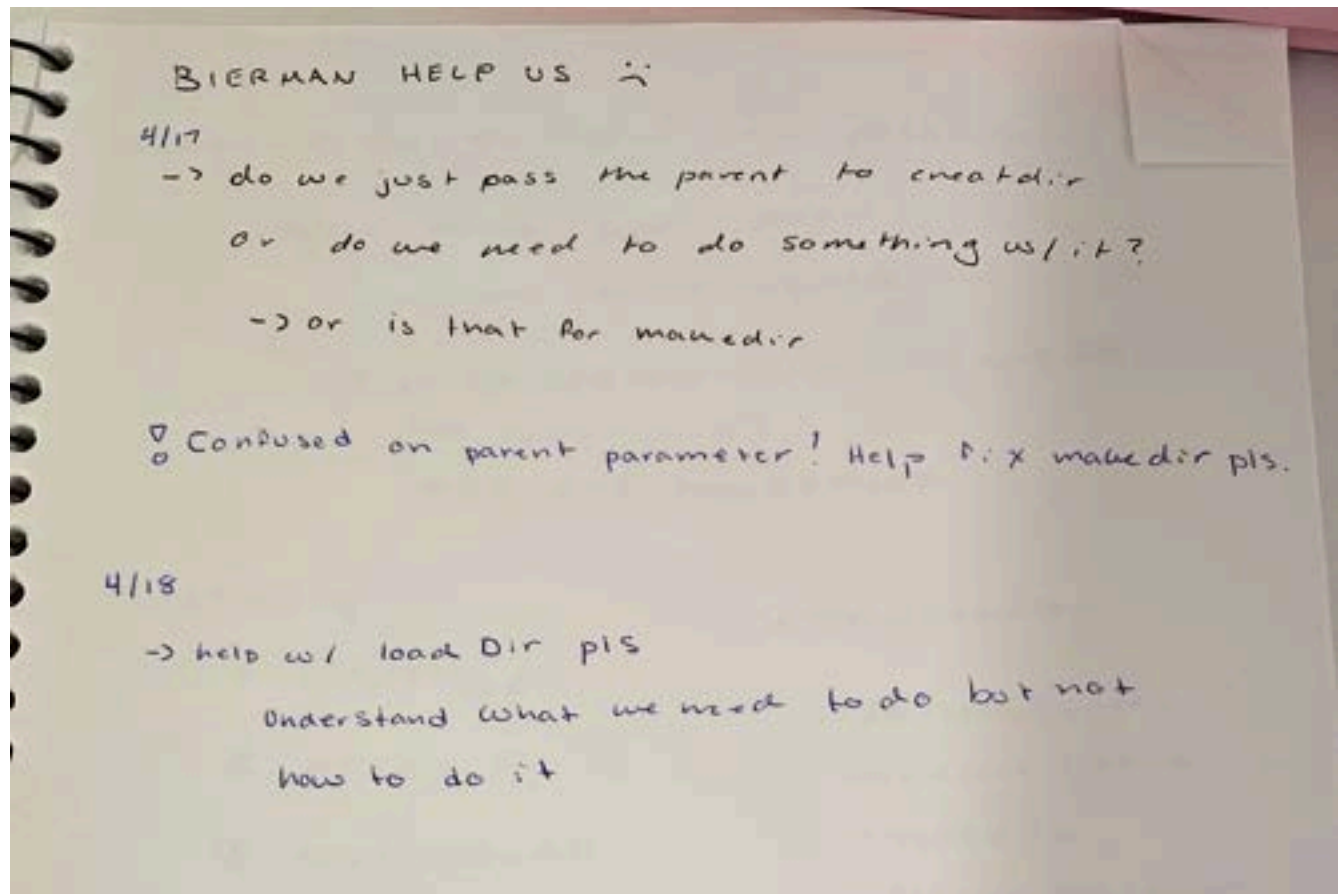 BIERMAN HELP US :(
4/17
-> do we just pass the parent to creatdir
or do we need to do something w/ it?
-> or is that for makedir
! Confused on parent parameter! Help fix makedir pls.
4/18
-> help w/ load Dir pls
Understand what we need to do but not
how to do it